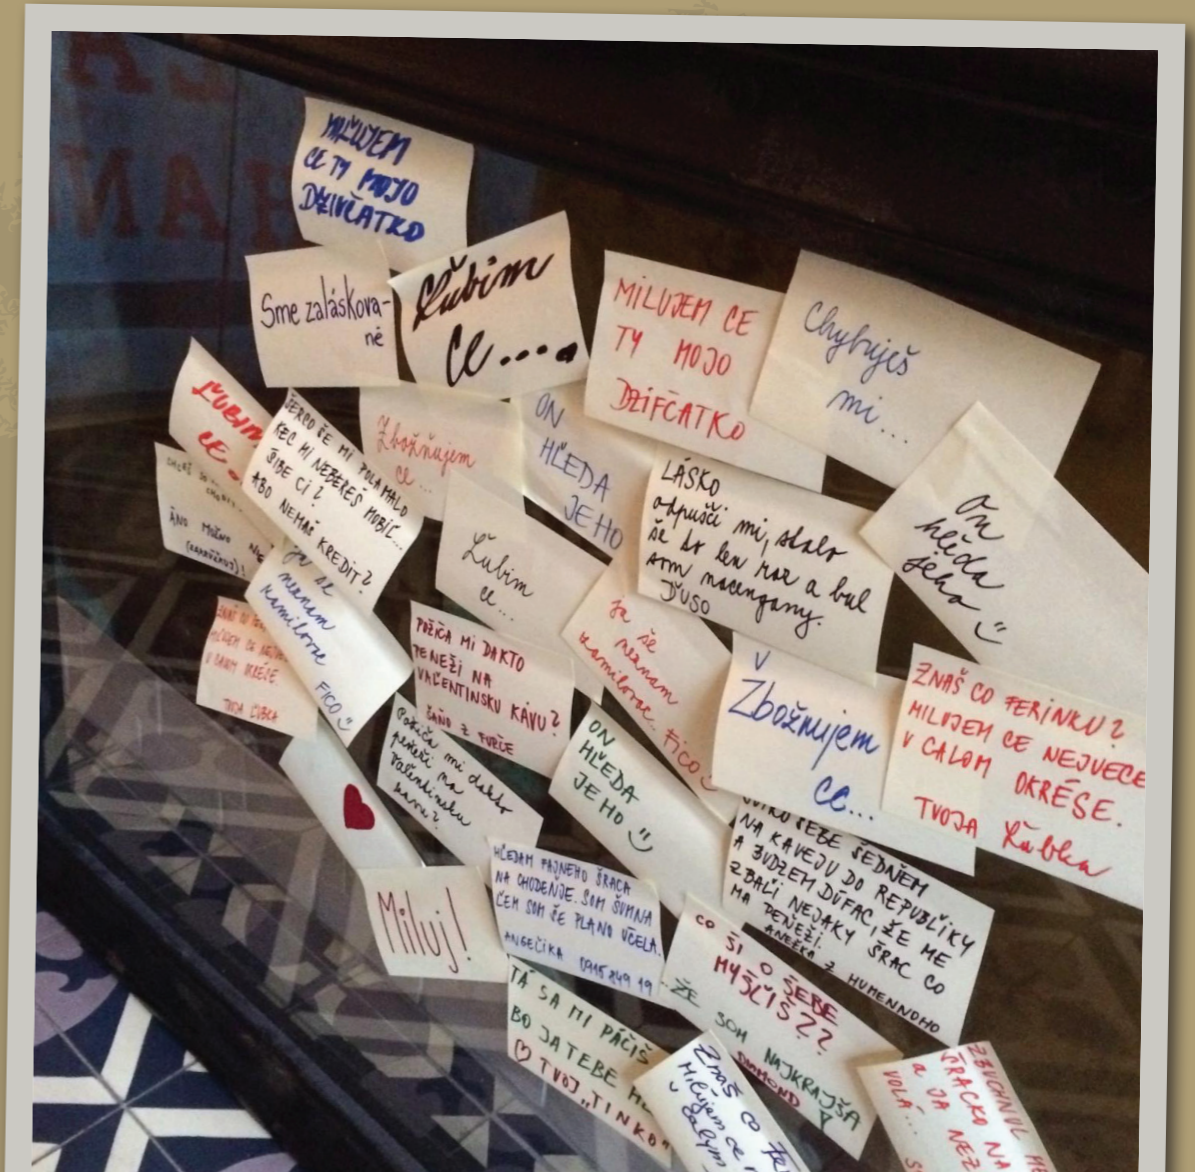 MIĽUJEM
CE TY MOJO
DZIVČATKO
Sme zaláskova-
né
Ľúbim
ce....
MILUJEM CE
TY MOJO
DZIFČATKO
Chybuješ
mi...
ĽUBIM
CE.
ŠERCO ŠE MI POLAMALO
KEC MI NEBEREŠ MOBIL...
ŠIBE CI?
ABO NEMAŠ KREDIT?
Zbožňujem
ce...
ON
HĽEDA
JEHO
LÁSKO
odpušči mi, stalo
še to len raz a bul
som nacengany.
ĎUSO
on
hľeda
jeho
ÁNO
Ľubim
ce..
ja se
neznam
kamilovac
FICO
V CALOM OKRÉSE.
TVOJA ĽUBKA
POŽIČA MI DAKTO
PENEŽI NA
VALENTINSKU KÁVU?
ĽAŇO Z FURČE
ja še
neznam
kamilovac... FICO
Zbožnujem
ce...
ZNAŠ CO FERINKU?
MILUJEM CE NEJVECE
V CALOM OKRÉSE.
TVOJA Ľubka
Požiča mi dakto
peneži na
Valentinsku
kavu?
ON
HĽEDA
JEHO
ŠEBE ŠEDNEM
NA KAVEJU DO REPUBLIKY
A BUDZEM DÚFAC, ŽE ME
ZBALI NEJAKY ŠRAC CO
MA PEŇEŽI.
ANEŽKA Z HUMENNOHO
Miluj!
HĽEDAM FAJNEHO ŠRACA
NA CHODENJE. SOM ŠUMNA
ĽEM SOM ŠE PLANO UČELA.
ANGEĽIKA 0915 849 19
CO ŠI O ŠEBE
MYŠLIŠ??
..ŽE SOM NAJKRAJŠA
DIAMOND
TÁ SA MI PÁČIŠ
BO JA TEBE
TVOJ „TINKO"
Znaš co
Milujem ce
calym
ZBUCHNUL
ŠRACKO NA
a JA NEŽ
VOLÁ...